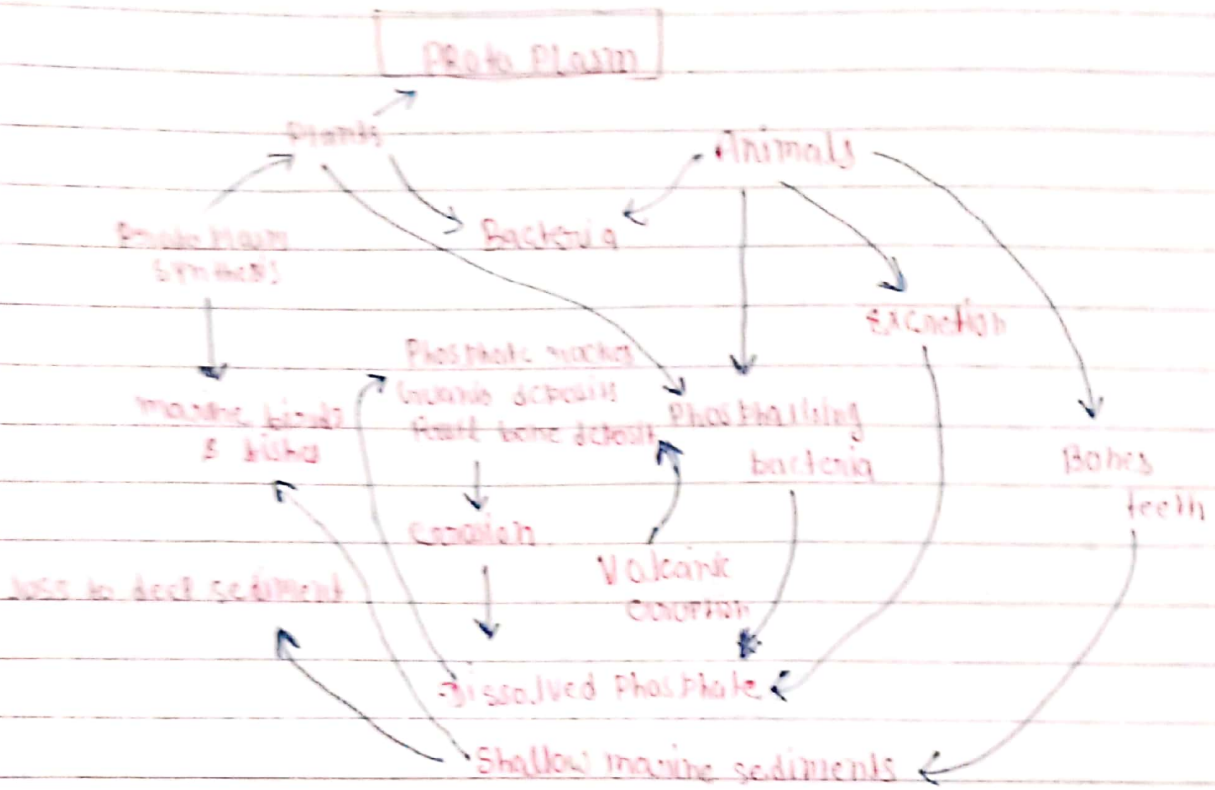 PRoto Plasm
Plants
Animals
Bacteria
synthesis
Excretion
Phosphate rocks
Guano deposits
Fossil bone deposit
Phosphatising
bacteria
marine birds
& fishes
Bones
teeth
Erosion
Volcanic
loss to deep sediment
Dissolved Phosphate
Shallow marine sediments